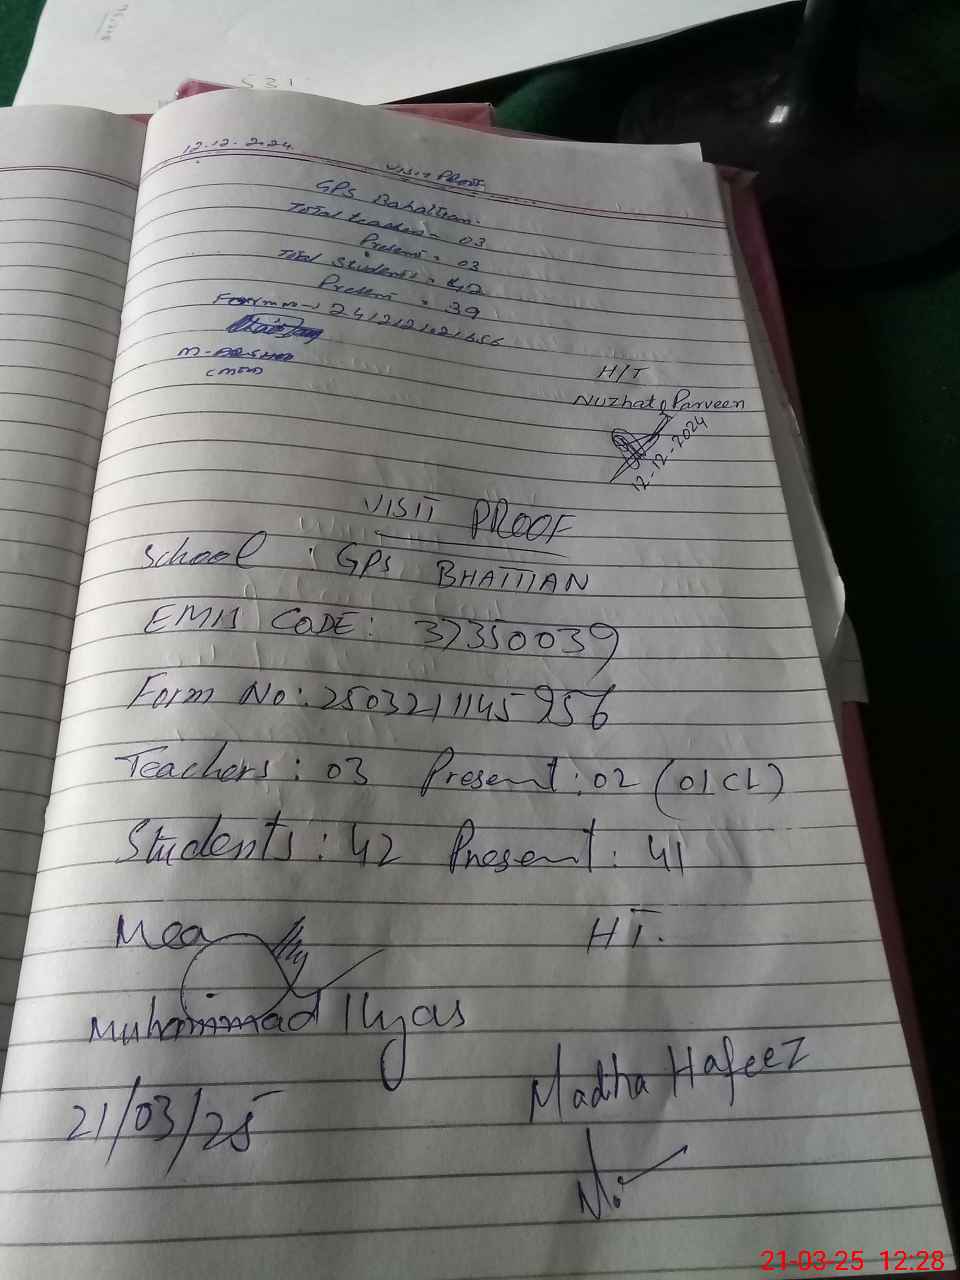 12.12.2024
VISIT PROOF
GPS Bahattian.
Total teachers = 03
Present = 03
Total Students = 42
Present = 39
H/T
Nuzhat Parveen
12-12-2024
VISIT PROOF
School : GPS BHATTIAN
EMIS CODE: 37350039
Form No: 2503211145956
Teachers: 03 Present: 02 (01 CL)
Students: 42 Present: 41
Mea HT.
Muhammad Ilyas
Madiha Hafeez
21/03/25
21-03-25 12:28